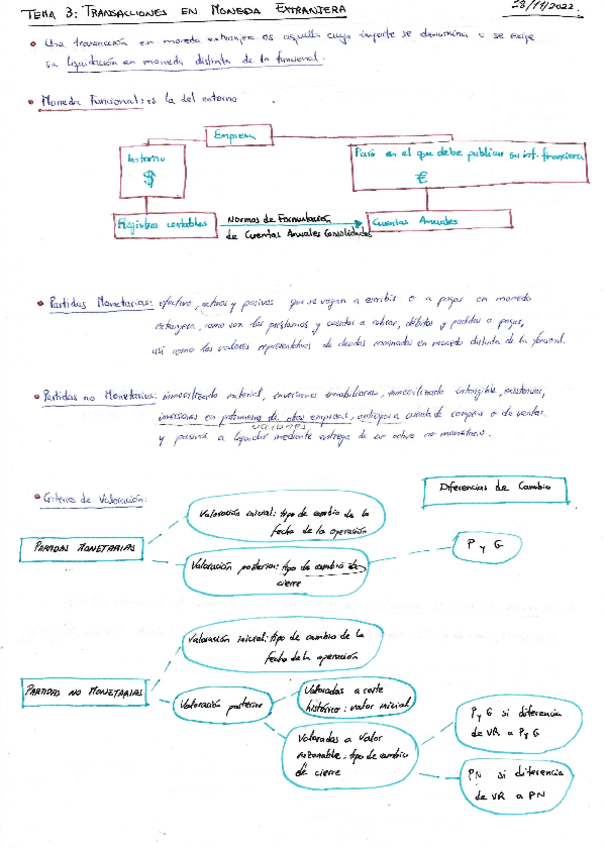 TEMA 3: TRANSACCIONES EN MONEDA EXTRANJERA
23/11/2022.
• Una transacción en moneda extranjera es aquella cuyo importe se denomina o se exige
su liquidación en moneda distinta de la funcional.
• Moneda Funcional: es la del entorno
Empresa
Entorno
$
País en el que debe publicar su inf. financiera
€
Registros contables
Normas de Formulación
de Cuentas Anuales Consolidadas
Cuentas Anuales
• Partidas Monetarias: efectivo, activos y pasivos que se vayan a recibir o a pagar en moneda
extranjera, como son los préstamos y cuentas a cobrar, débitos y partidas a pagar,
así como los valores representativos de deudas nominados en moneda distinta de la funcional.
• Partidas no Monetarias: inmovilizado material, inversiones inmobiliarias, inmovilizado intangible, existencias,
inversiones en patrimonio de otras empresas, anticipos a cuenta de compras o de ventas
y pasivos a liquidar mediante entrega de un activo no monetario.
• Criterios de Valoración:
Diferencias de Cambio
Valoración inicial: tipo de cambio de la
fecha de la operación
PARTIDAS MONETARIAS
Valoración posterior: tipo de cambio de
cierre
P y G
Valoración inicial: tipo de cambio de la
fecha de la operación
PARTIDAS NO MONETARIAS
Valoración posterior
Valoradas a coste
histórico: valor inicial
Valoradas a valor
razonable, tipo de cambio
de cierre
P y G si diferencia
de VR a P y G
PN si diferencia
de VR a PN